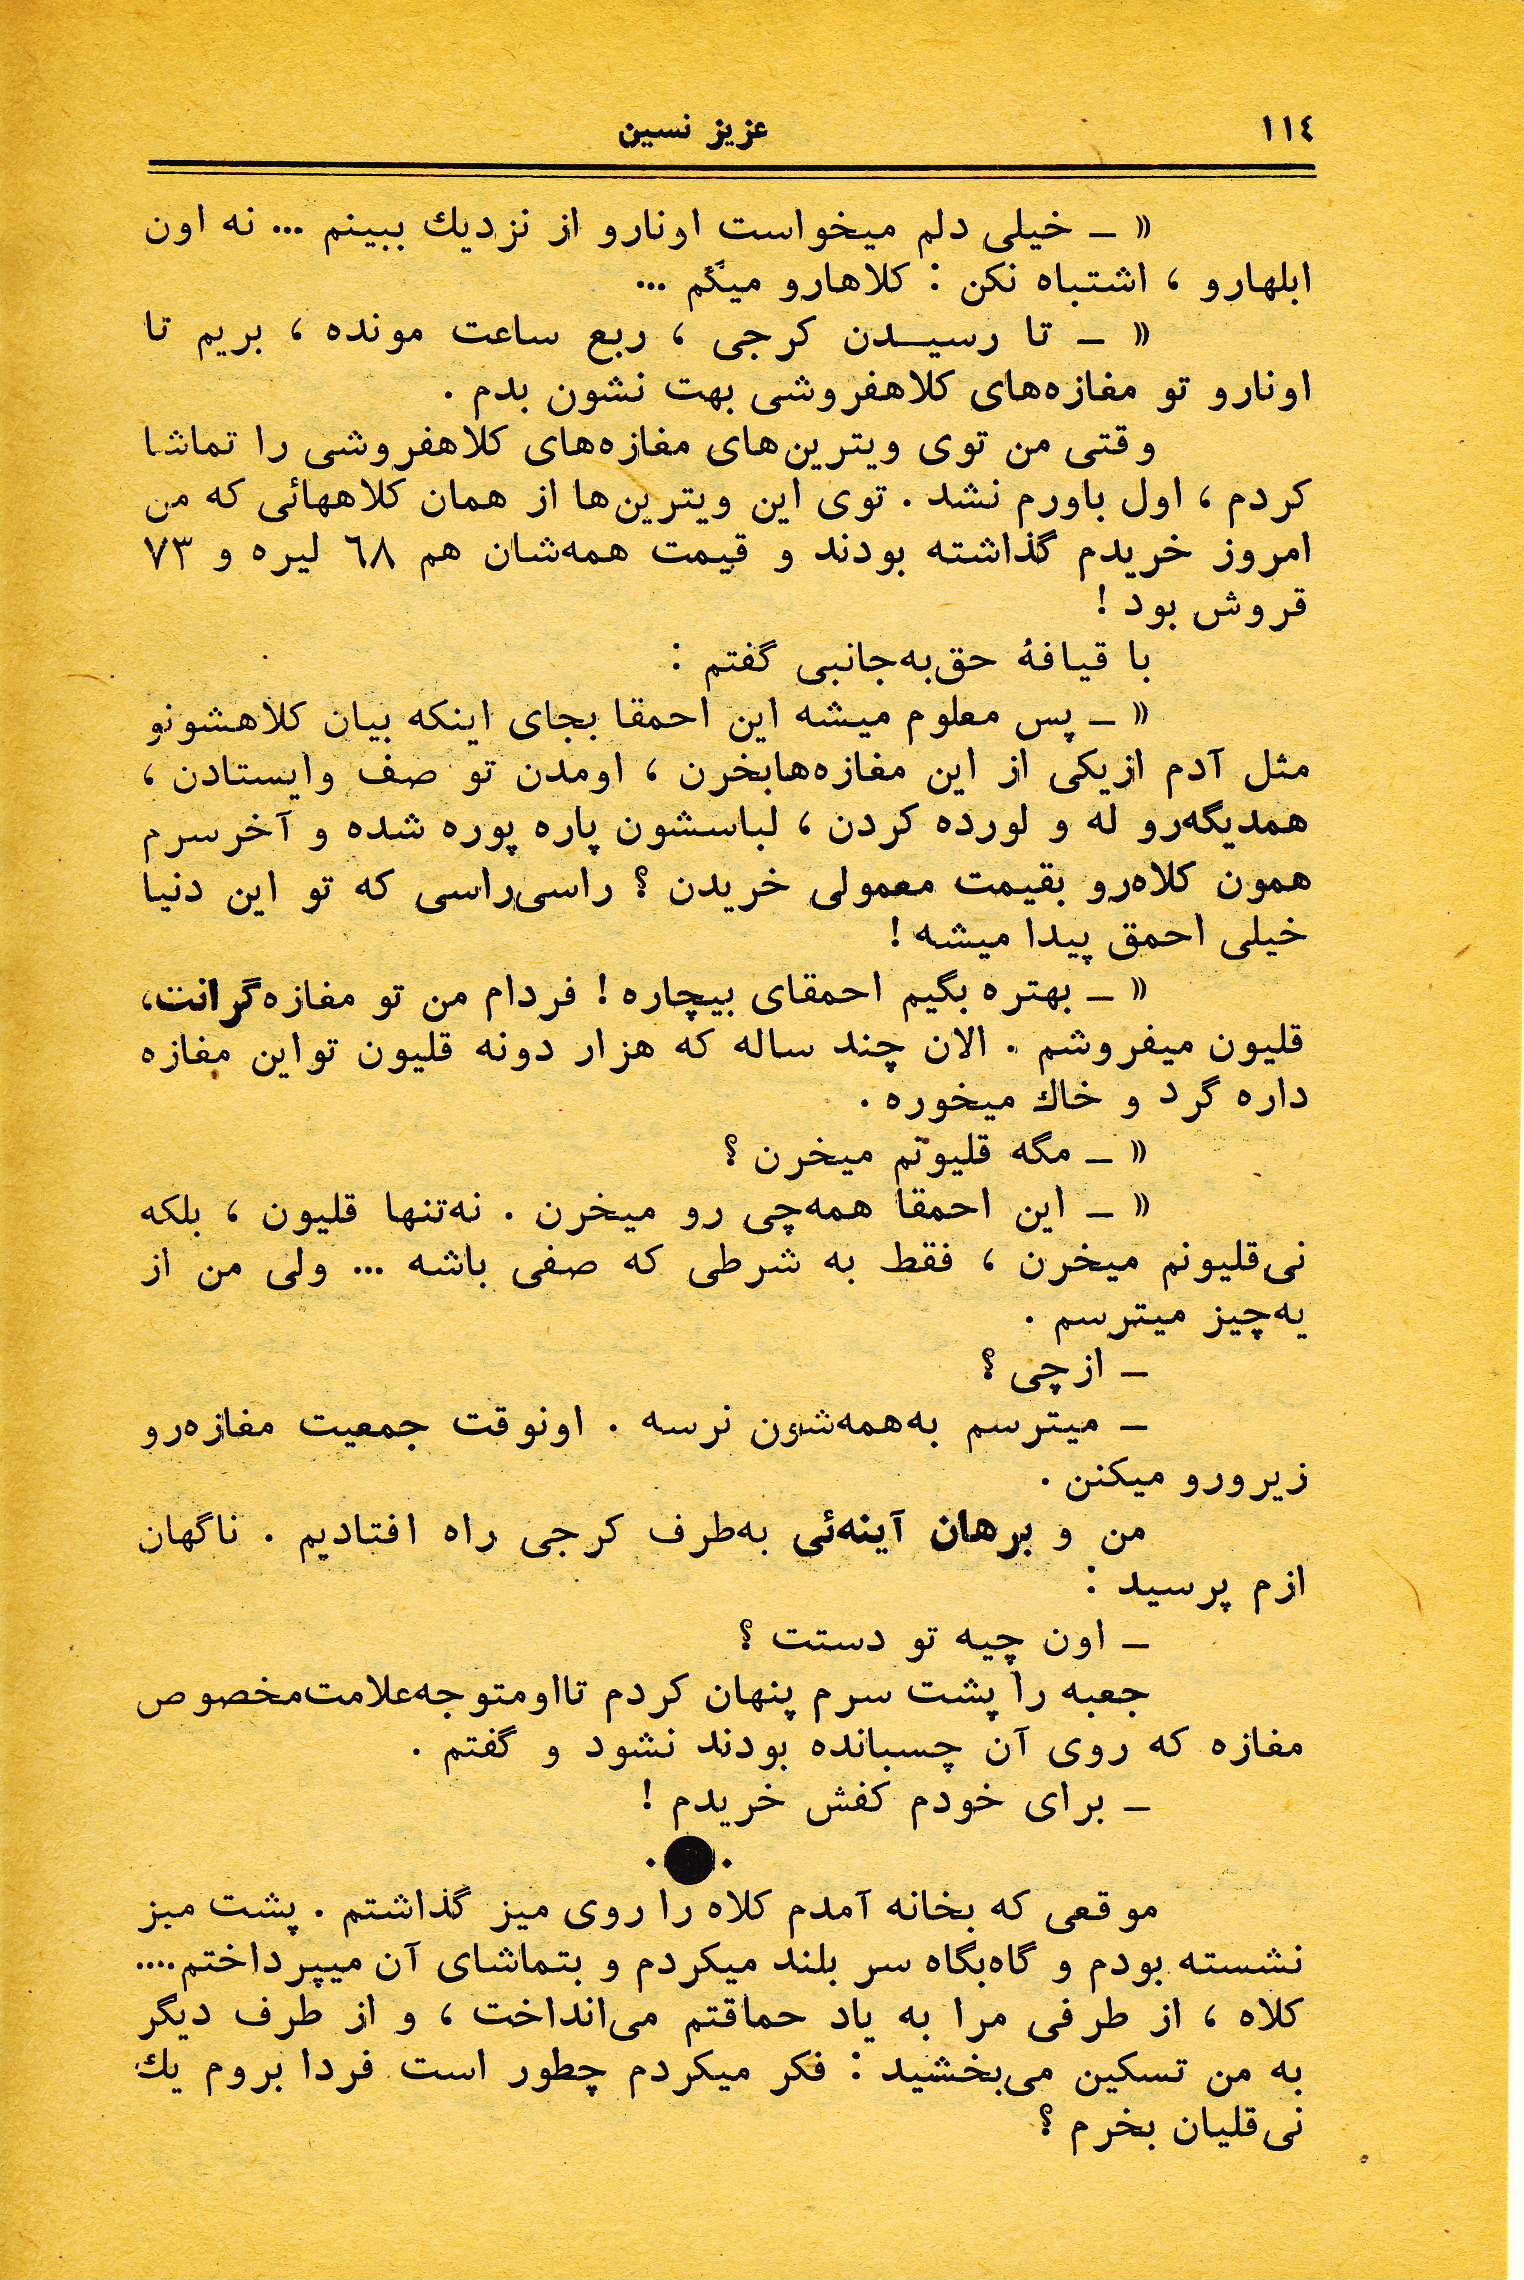 ١١٤
عزیز نسین
« ــ خیلی دلم میخواست اونارو از نزدیك ببینم ... نه اون
ابلهارو ، اشتباه نکن : کلاهارو میگم ...
« ــ تا رسیــدن کرجی ، ربع ساعت مونده ، بریم تا
اونارو تو مغازه‌های کلاهفروشی بهت نشون بدم .
وقتی من توی ویترین‌های مغازه‌های کلاهفروشی را تماشا
کردم ، اول باورم نشد . توی این ویترین‌ها از همان کلاههائی که من
امروز خریدم گذاشته بودند و قیمت همه‌شان هم ٦٨ لیره و ٧٣
قروش بود !
با قیافهٔ حق‌به‌جانبی گفتم :
« ــ پس معلوم میشه این احمقا بجای اینکه بیان کلاهشونو
مثل آدم ازیکی از این مغازه‌هابخرن ، اومدن تو صف وایستادن ،
همدیگه‌رو له و لورده کردن ، لباسشون پاره پوره شده و آخرسرم
همون کلاه‌رو بقیمت معمولی خریدن ؟ راسی‌راسی که تو این دنیا
خیلی احمق پیدا میشه !
« ــ بهتره بگیم احمقای بیچاره ! فردام من تو مغازه گرانت،
قلیون میفروشم . الان چند ساله که هزار دونه قلیون تواین مغازه
داره گرد و خاك میخوره .
« ــ مگه قلیونم میخرن ؟
« ــ این احمقا همه‌چی رو میخرن . نه‌تنها قلیون ، بلکه
نی‌قلیونم میخرن ، فقط به شرطی که صفی باشه ... ولی من از
یه‌چیز میترسم .
ــ ازچی ؟
ــ میترسم به‌همه‌شون نرسه . اونوقت جمعیت مغازه‌رو
زیرورو میکنن .
من و برهان آینه‌ئی به‌طرف کرجی راه افتادیم . ناگهان
ازم پرسید :
ــ اون چیه تو دستت ؟
جعبه را پشت سرم پنهان کردم تااومتوجه‌علامت‌مخصوص
مغازه که روی آن چسبانده بودند نشود و گفتم .
ــ برای خودم کفش خریدم !
.●.
موقعی که بخانه آمدم کلاه را روی میز گذاشتم . پشت میز
نشسته بودم و گاه‌بگاه سر بلند میکردم و بتماشای آن میپرداختم....
کلاه ، از طرفی مرا به یاد حماقتم می‌انداخت ، و از طرف دیگر
به من تسکین می‌بخشید : فکر میکردم چطور است فردا بروم یك
نی‌قلیان بخرم ؟